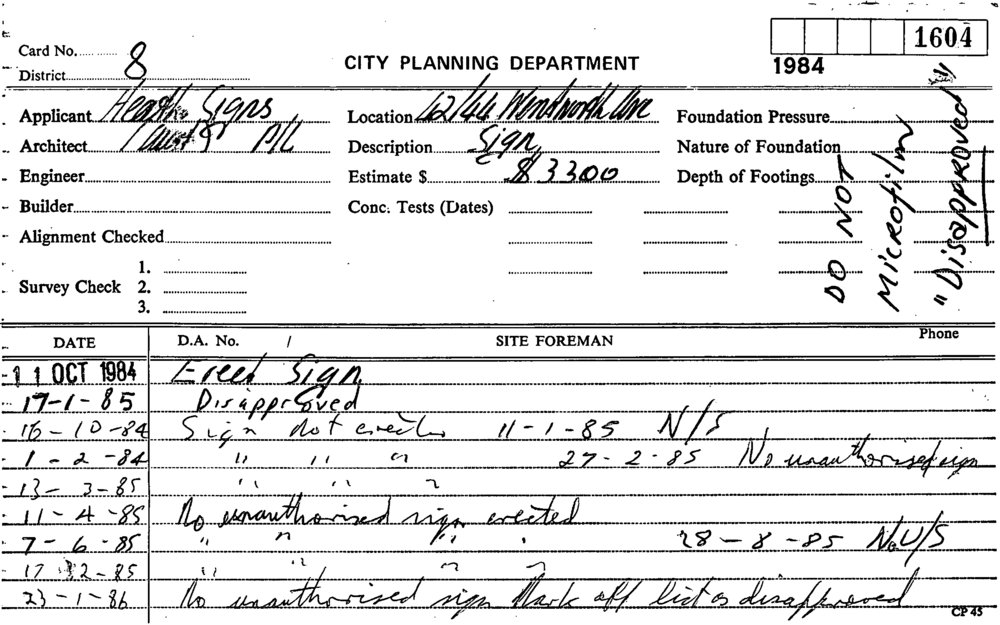 1604
1984
Card No.
District 8
CITY PLANNING DEPARTMENT
Applicant Heath Signs
Architect (Aust) P/L
Engineer
Builder
Alignment Checked
Survey Check 1.
2.
3.
Location 42/44 Wentworth Ave
Description Sign
Estimate $ $3300
Conc. Tests (Dates)
Foundation Pressure
Nature of Foundation
Depth of Footings
DO NOT
MICROfilm
"DisAPPROVED"
DATE D.A. No. / SITE FOREMAN Phone
11 OCT 1984 Erect Sign
17-1-85 Disapproved
16-10-84 Sign not erected 11-1-85 N/S
1-2-84 " " " 27-2-85 No unauthorised sign
13-3-85 " " "
11-4-85 No unauthorised sign erected
7-6-85 " " " " 28-8-85 No U/S
17-12-85 " " " "
23-1-86 No unauthorised sign Mark off list as disapproved
CP 45